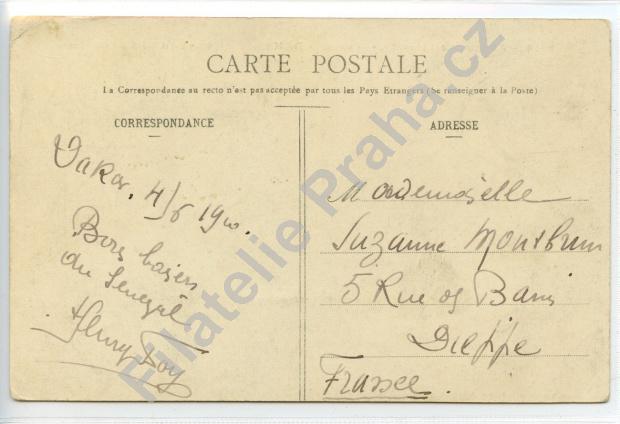 CARTE POSTALE
La Correspondance au recto n'est pas acceptée par tous les Pays Etrangers (Se renseigner à la Poste)
CORRESPONDANCE
Dakar. 4/6 1910.
Bons baisers
du Sénégal
Henry
ADRESSE
Mademoiselle
Suzanne Montbrun
5 Rue
Dieppe
France.
Filatelie Praha.cz